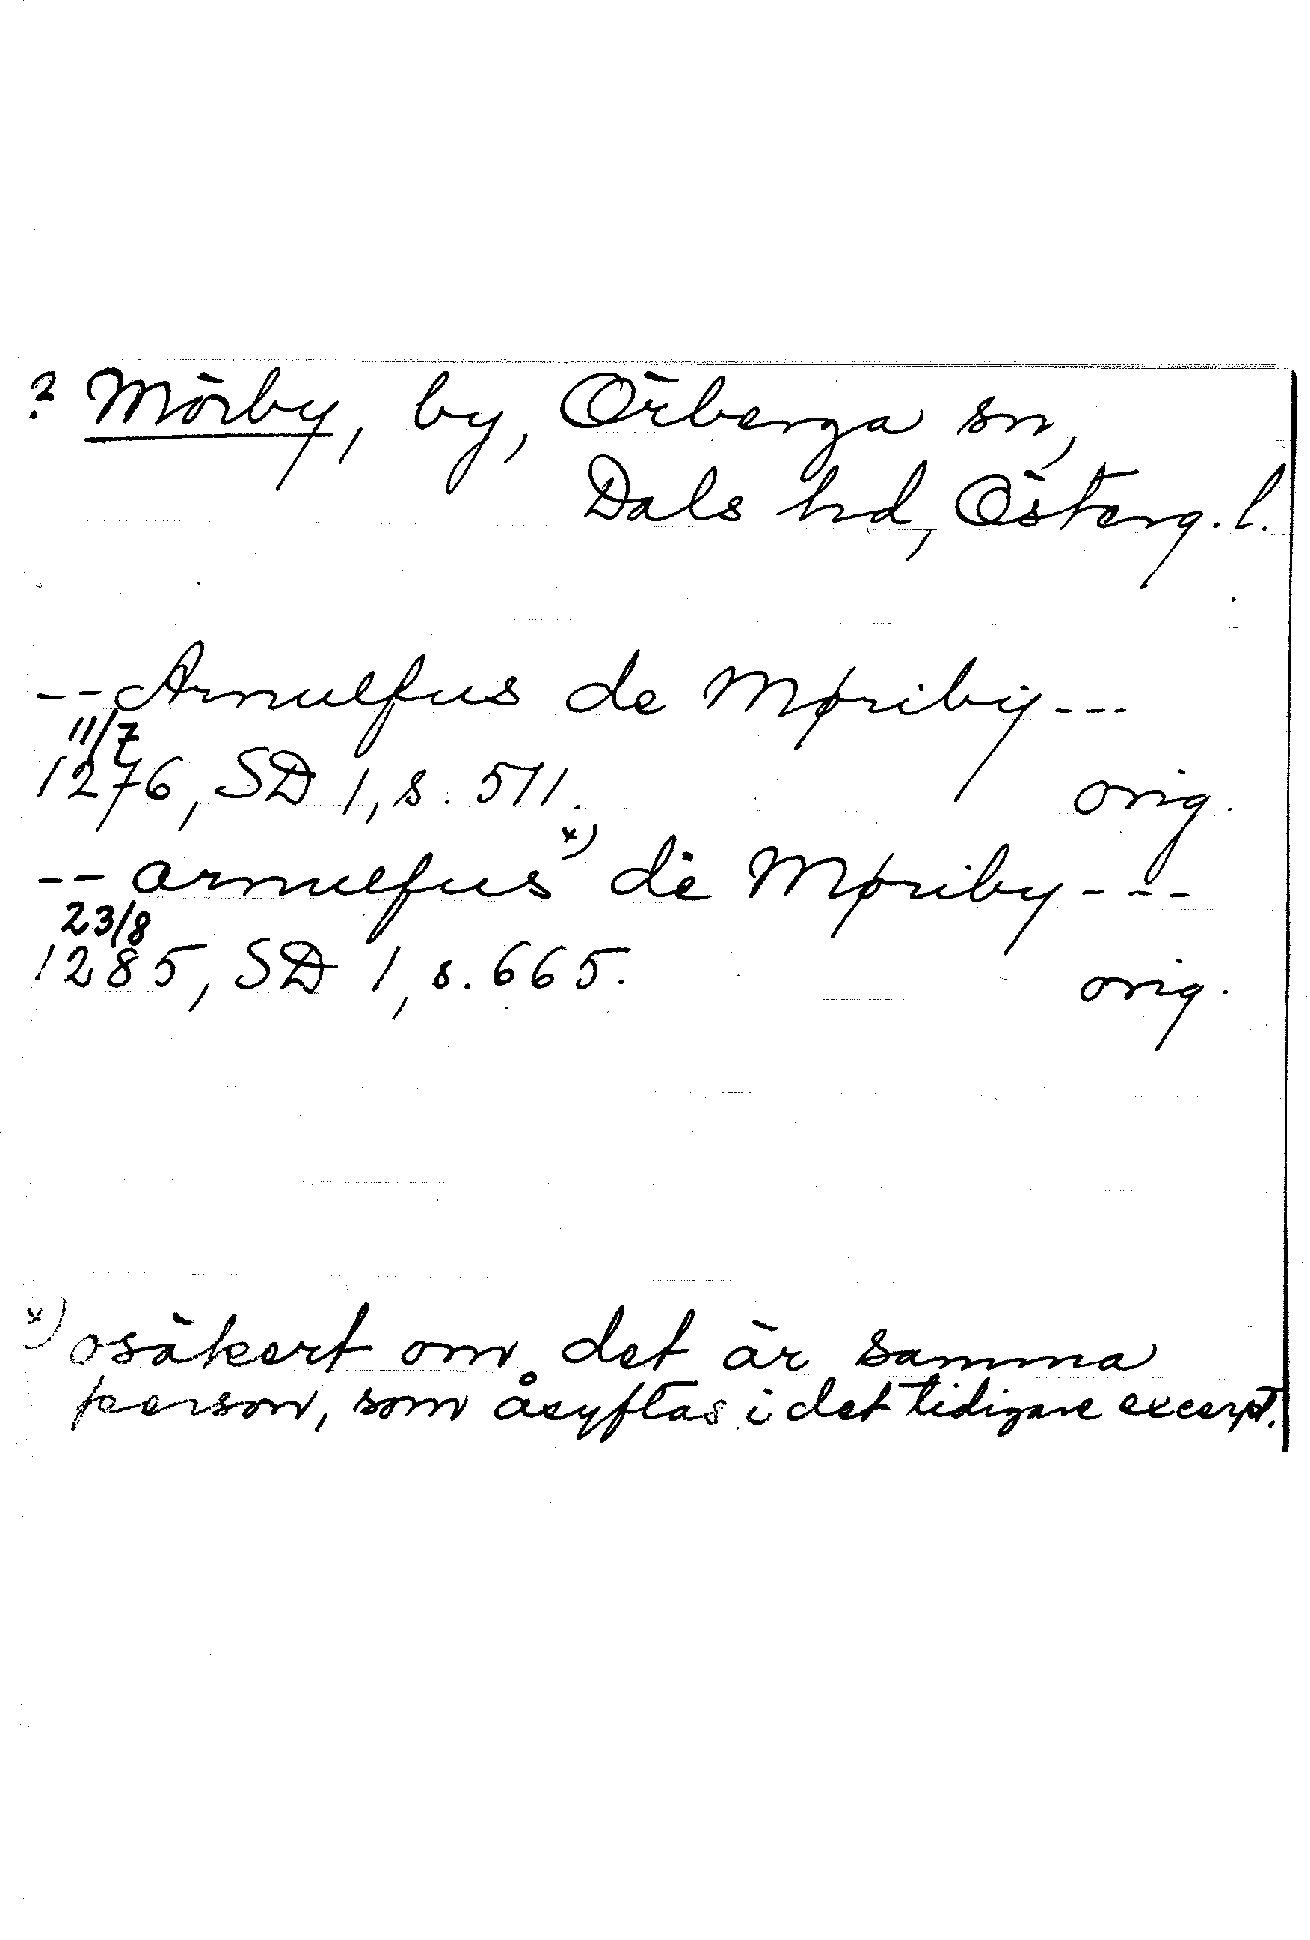 ? Mörby, by, Örberga sn,
Dals hd, Österg. l.
-- Arnulfus de Møriby ---
11/7
1276, SD 1, s. 511. orig.
-- arnulfus x) de Møriby ---
23/8
1285, SD 1, s. 665. orig.
x) osäkert om det är samma
person, som åsyftas i det tidigare excerpt.